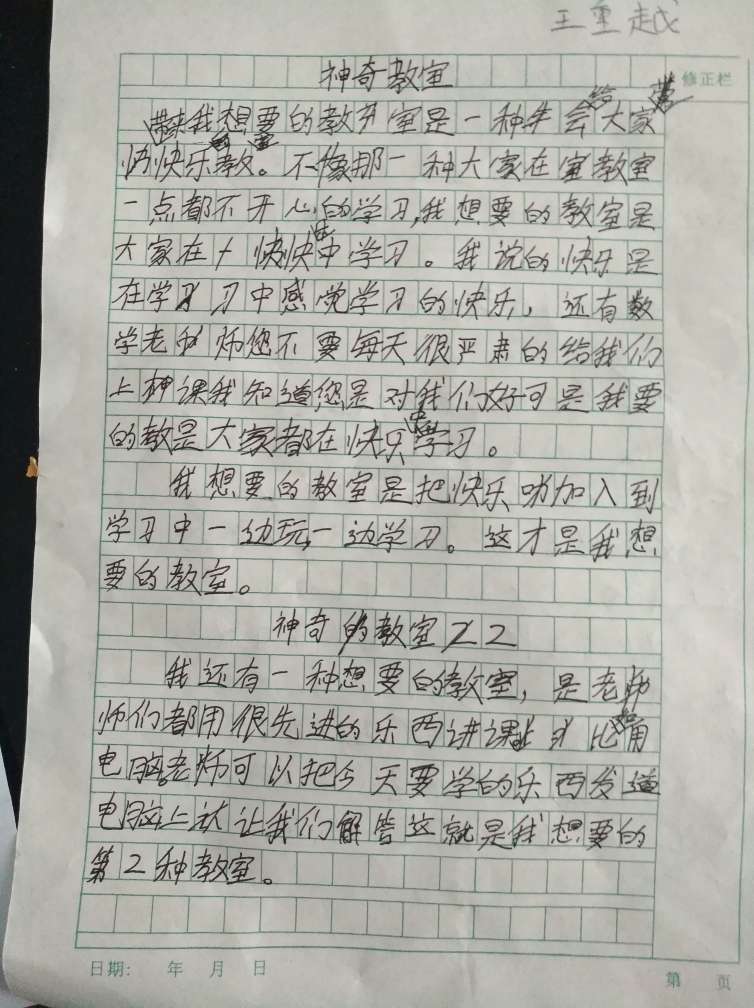 王重越
修正栏
神奇教室
我想要的教室是一种会给大家带来
快乐教室。不像那一种大家在教室
一点都不开心的学习,我想要的教室是
大家在快乐中学习。我说的快乐是
在学习中感觉学习的快乐,还有数
学老师您不要每天很严肃的给我们
上课我知道您是对我们好可是我要
的教是大家都在快乐中学习。
我想要的教室是把快乐加入到
学习中一边玩,一边学习。这才是我想
要的教室。
神奇的教室2
我还有一种想要的教室,是老师
师们都用很先进的乐西讲课比如用
电脑。老师可以把今天要学的乐西发道
电脑上让我们解答这就是我想要的
第2种教室。
日期: 年 月 日
第 页